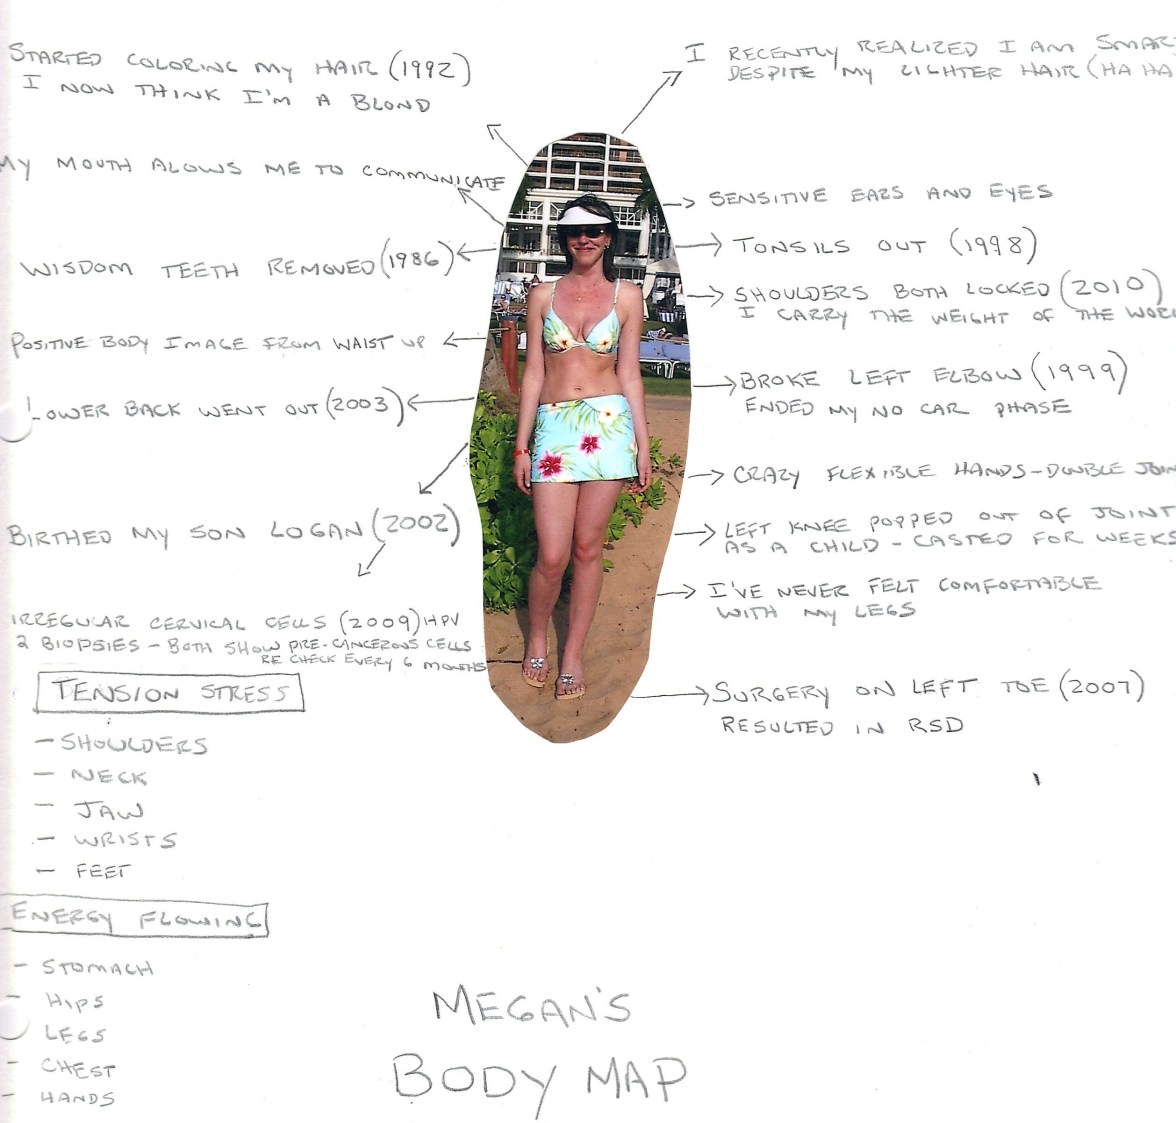 STARTED COLORING MY HAIR (1992)
I NOW THINK I'M A BLOND
MY MOUTH ALOWS ME TO COMMUNICATE
WISDOM TEETH REMOVED (1986)
POSITIVE BODY IMAGE FROM WAIST UP
LOWER BACK WENT OUT (2003)
BIRTHED MY SON LOGAN (2002)
IRREGULAR CERVICAL CELLS (2009) HPV
2 BIOPSIES - BOTH SHOW PRE-CANCEROUS CELLS
RE CHECK EVERY 6 MONTHS
TENSION STRESS
- SHOULDERS
- NECK
- JAW
- WRISTS
- FEET
ENERGY FLOWING
- STOMACH
- HIPS
- LEGS
- CHEST
- HANDS
I RECENTLY REALIZED I AM SMAR
DESPITE MY LIGHTER HAIR (HA HA
SENSITIVE EARS AND EYES
TONSILS OUT (1998)
SHOULDERS BOTH LOCKED (2010)
I CARRY THE WEIGHT OF THE WOR
BROKE LEFT ELBOW (1999)
ENDED MY NO CAR PHASE
CRAZY FLEXIBLE HANDS - DOUBLE JOIN
LEFT KNEE POPPED OUT OF JOINT
AS A CHILD - CASTED FOR WEEKS
I'VE NEVER FELT COMFORTABLE
WITH MY LEGS
SURGERY ON LEFT TOE (2007)
RESULTED IN RSD
MEGAN'S
BODY MAP